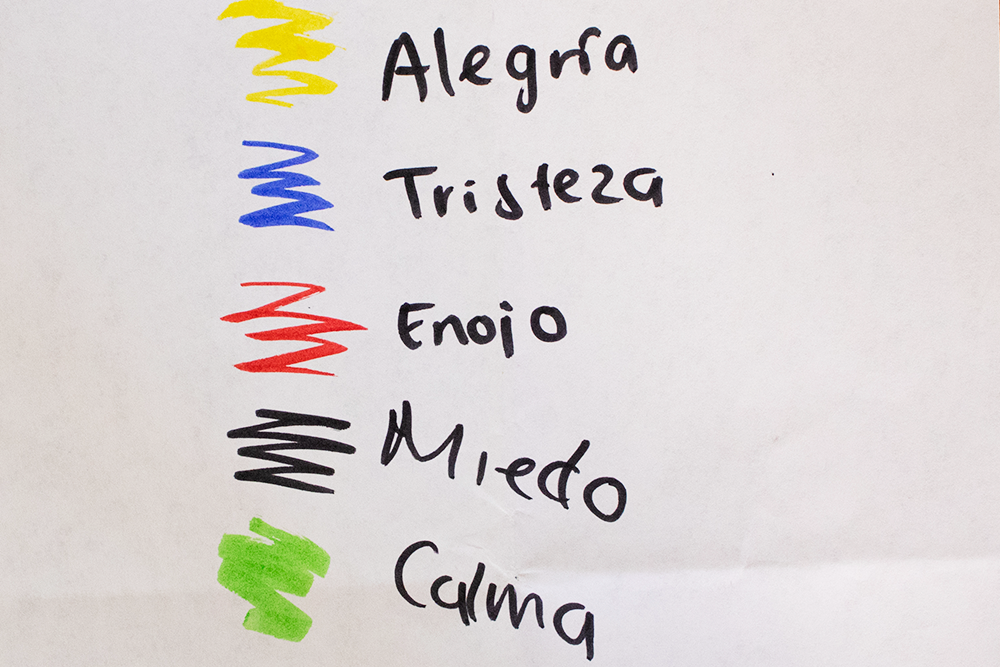 Alegría
Tristeza
Enojo
Miedo
Calma